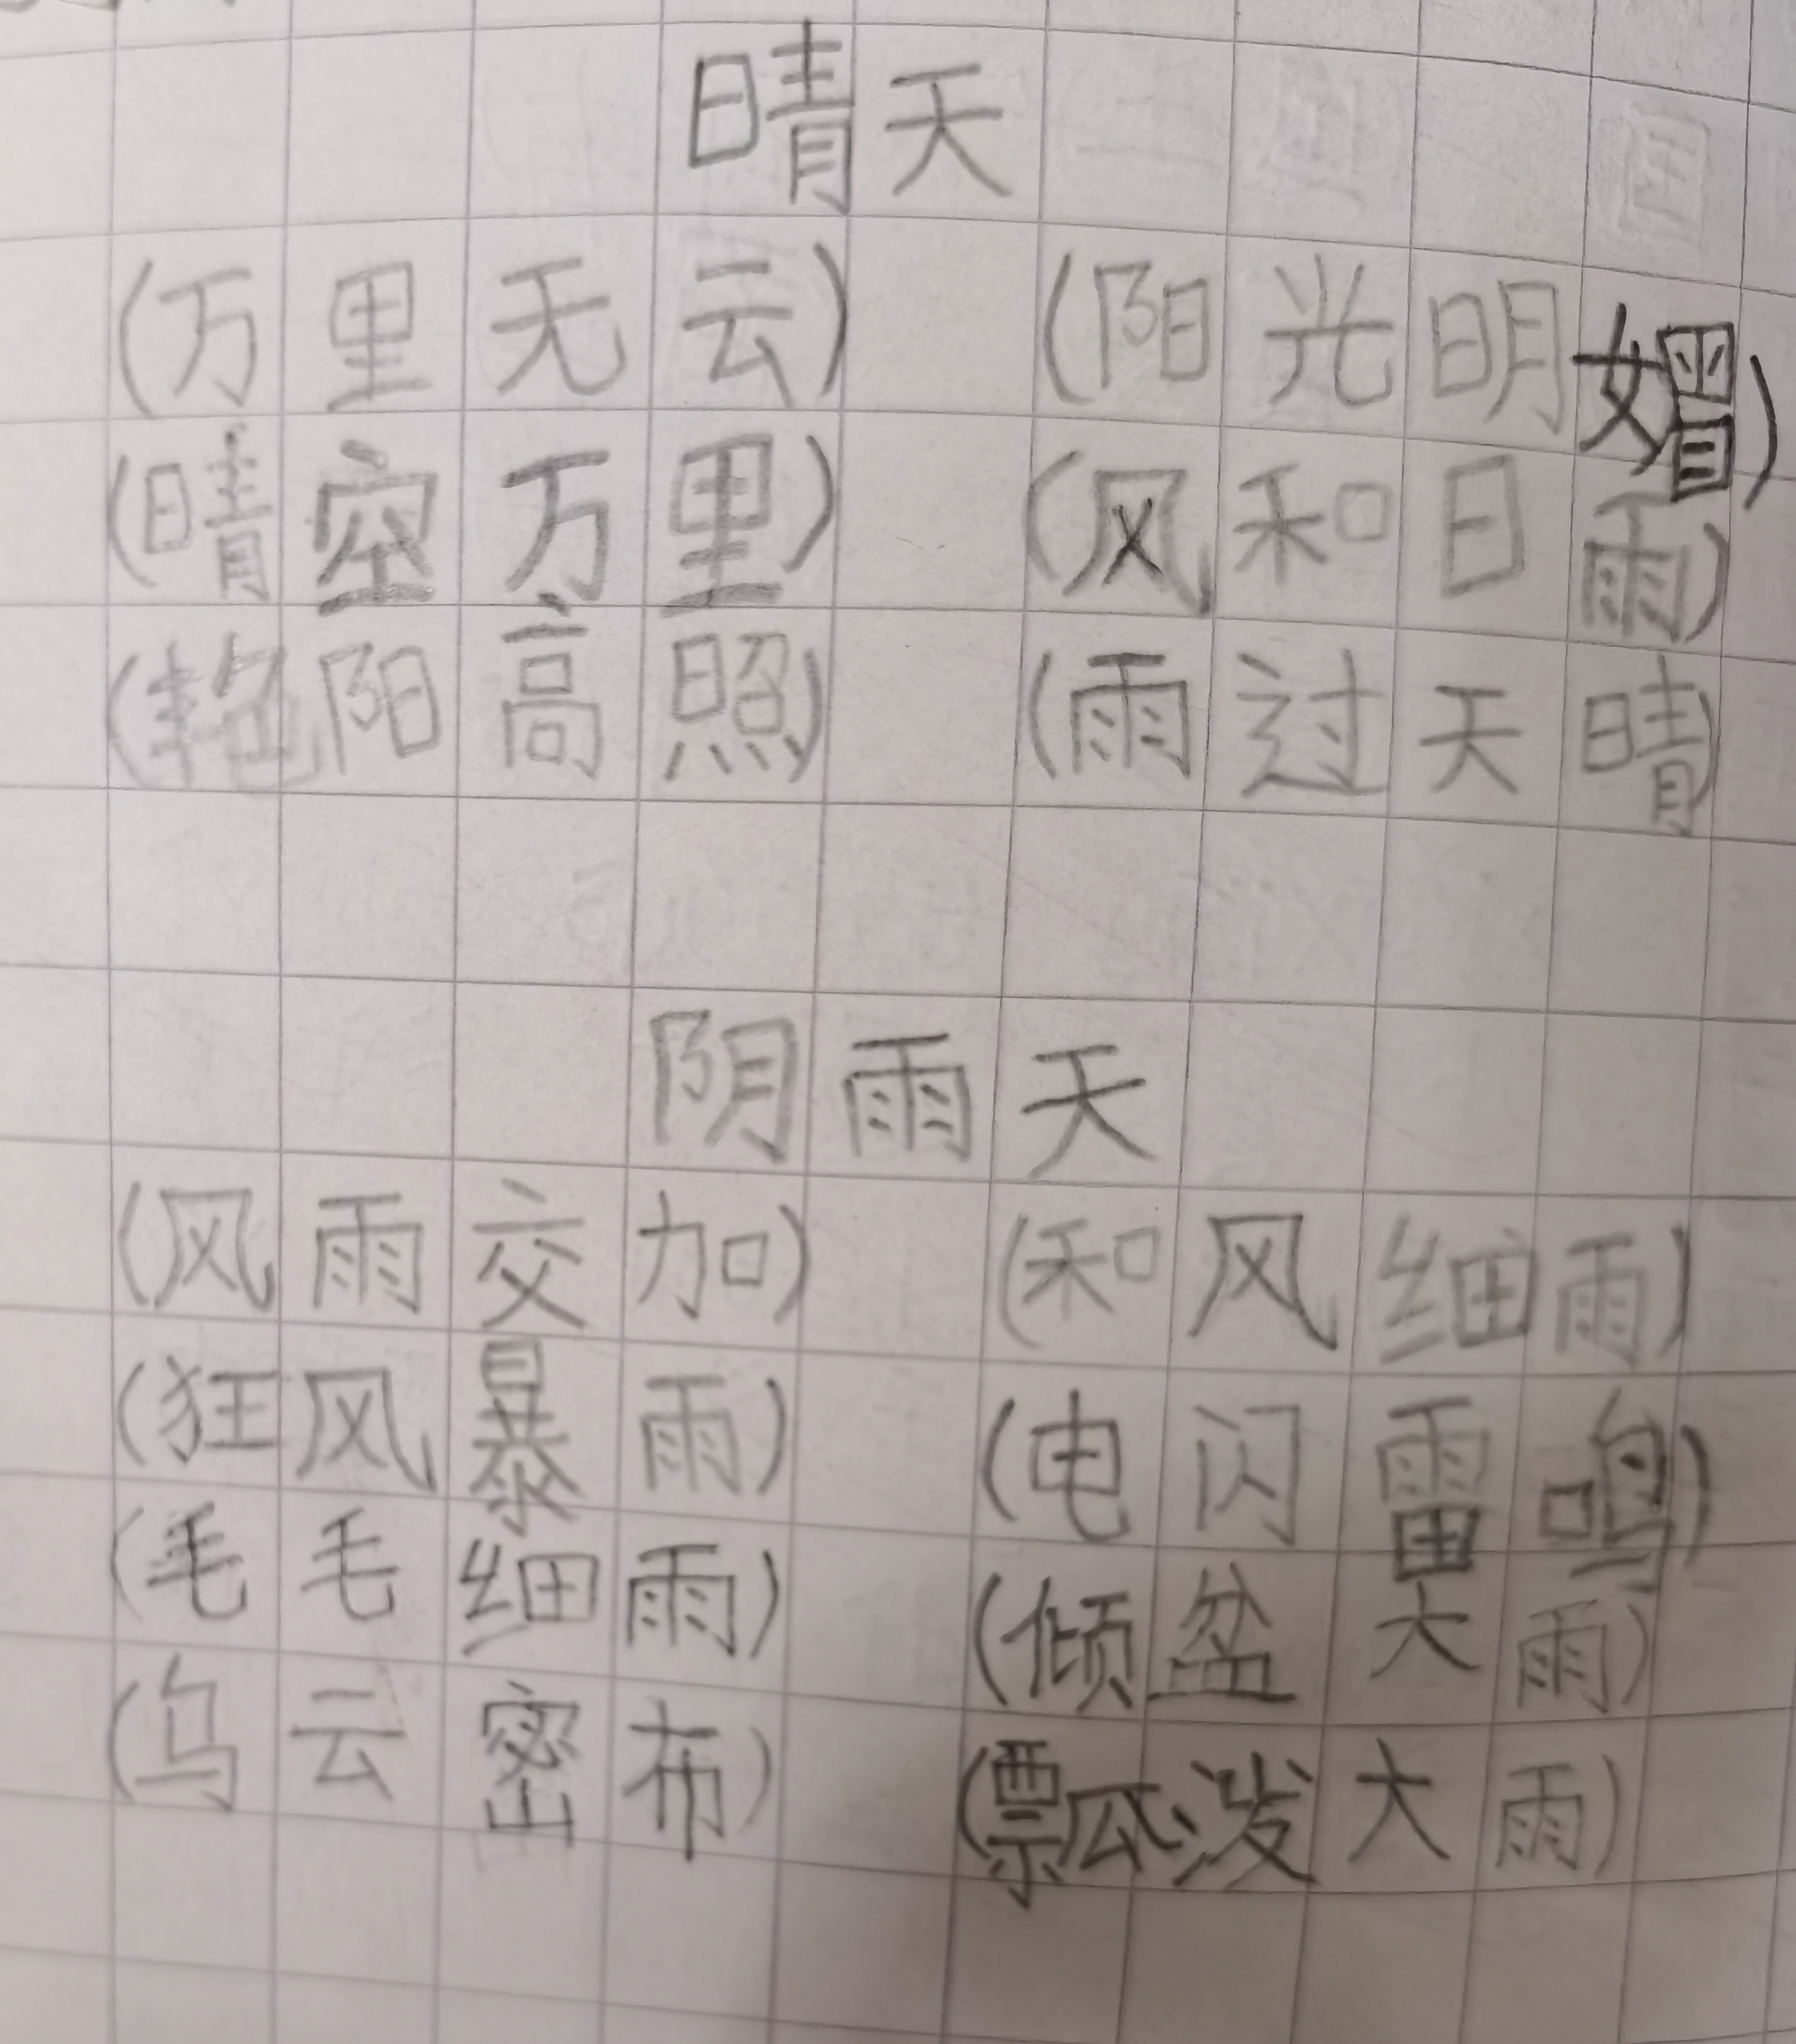 晴天
(万里无云) (阳光明媚)
(晴空万里) (风和日雨)
(艳阳高照) (雨过天晴)
阴雨天
(风雨交加) (和风细雨)
(狂风暴雨) (电闪雷鸣)
(毛毛细雨) (倾盆大雨)
(乌云密布) (瓢泼大雨)